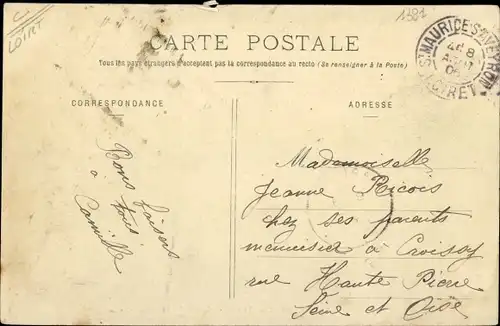 C.
LOIRET
1381
CARTE POSTALE
Tous les pays étrangers n'acceptent pas la correspondance au recto (Se renseigner à la Poste)
CORRESPONDANCE
ADRESSE
ST MAURICE-S-AVEYRON
LOIRET
Bons baisers
à tous
Camille
Mademoiselle
Jeanne Ricois
chez ses parents
menuisier à Croissy
rue Haute Pierre
Seine et Oise